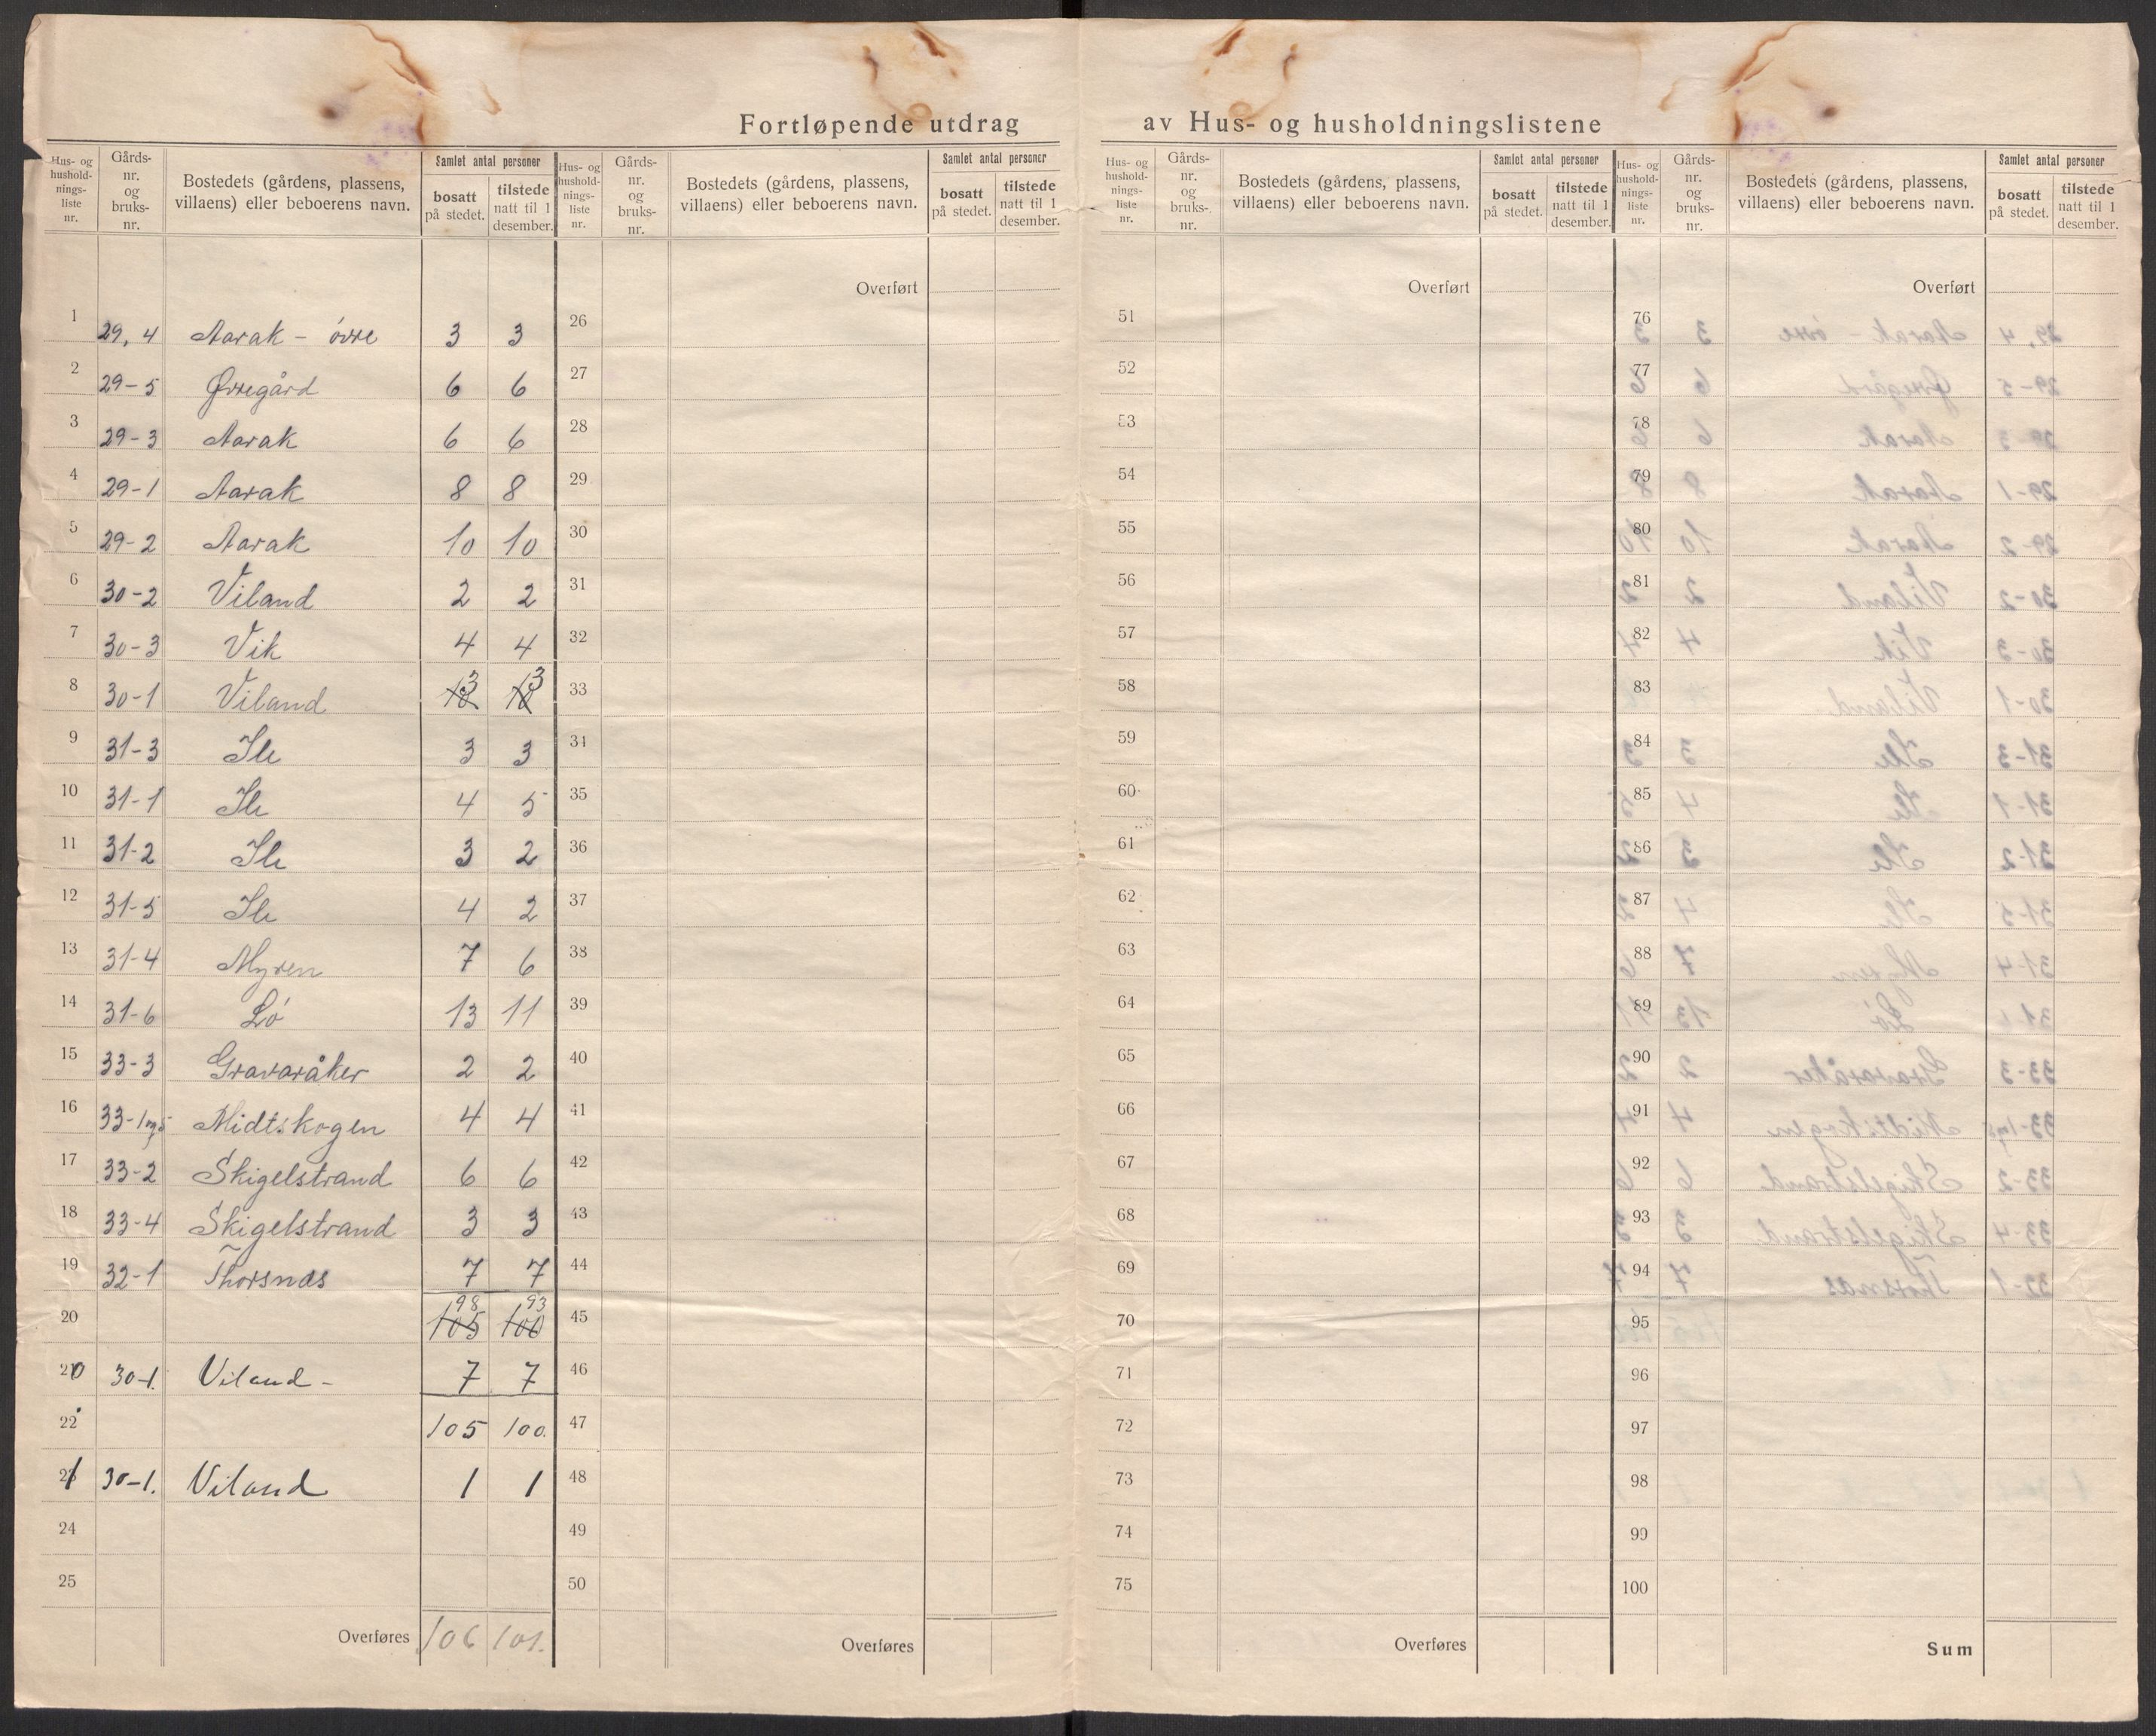 Fortløpende utdrag av Hus- og husholdningslistene
Hus- og hushold-nings-liste nr. Gårds-nr. og bruks-nr. Bostedets (gårdens, plassens, villaens) eller beboerens navn. Samlet antal personer bosatt på stedet. tilstede natt til 1 desember.
1 29, 4 Aarak - övre 3 3
2 29-5 Øvregård 6 6
3 29-3 Aarak 6 6
4 29-1 Aarak 8 8
5 29-2 Aarak 10 10
6 30-2 Viland 2 2
7 30-3 Vik 4 4
8 30-1 Viland 3 3
9 31-3 Ile 3 3
10 31-1 Ile 4 5
11 31-2 Ile 3 2
12 31-5 Ile 4 2
13 31-4 Myren 7 6
14 31-6 Ló 13 11
15 33-3 Gravaråker 2 2
16 33-1 og 5 Midtskogen 4 4
17 33-2 Skigelstrand 6 6
18 33-4 Skigelstrand 3 3
19 32-1 Thorsnas 7 7
98 93
20 105 100
20 30-1. Viland - 7 7
22 105 100.
21 30-1. Viland 1 1
24
25
Overføres 106 101.
Hus- og hushold-nings-liste nr. Gårds-nr. og bruks-nr. Bostedets (gårdens, plassens, villaens) eller beboerens navn. Samlet antal personer bosatt på stedet. tilstede natt til 1 desember.
Overført
26
27
28
29
30
31
32
33
34
35
36
37
38
39
40
41
42
43
44
45
46
47
48
49
50
Overføres
Hus- og hushold-nings-liste nr. Gårds-nr. og bruks-nr. Bostedets (gårdens, plassens, villaens) eller beboerens navn. Samlet antal personer bosatt på stedet. tilstede natt til 1 desember.
Overført
51
52
53
54
55
56
57
58
59
60
61
62
63
64
65
66
67
68
69
70
71
72
73
74
75
Overføres
Hus- og hushold-nings-liste nr. Gårds-nr. og bruks-nr. Bostedets (gårdens, plassens, villaens) eller beboerens navn. Samlet antal personer bosatt på stedet. tilstede natt til 1 desember.
Overført
76
77
78
79
80
81
82
83
84
85
86
87
88
89
90
91
92
93
94
95
96
97
98
99
100
Sum